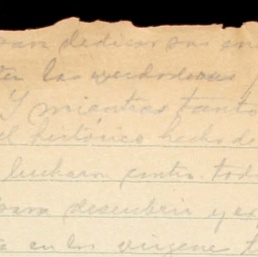 para dedicar sus en
las verdaderas
Y mientras tanto
el histórico hecho d
lucharon contra tod
para descubrir y ex
en los virgene t